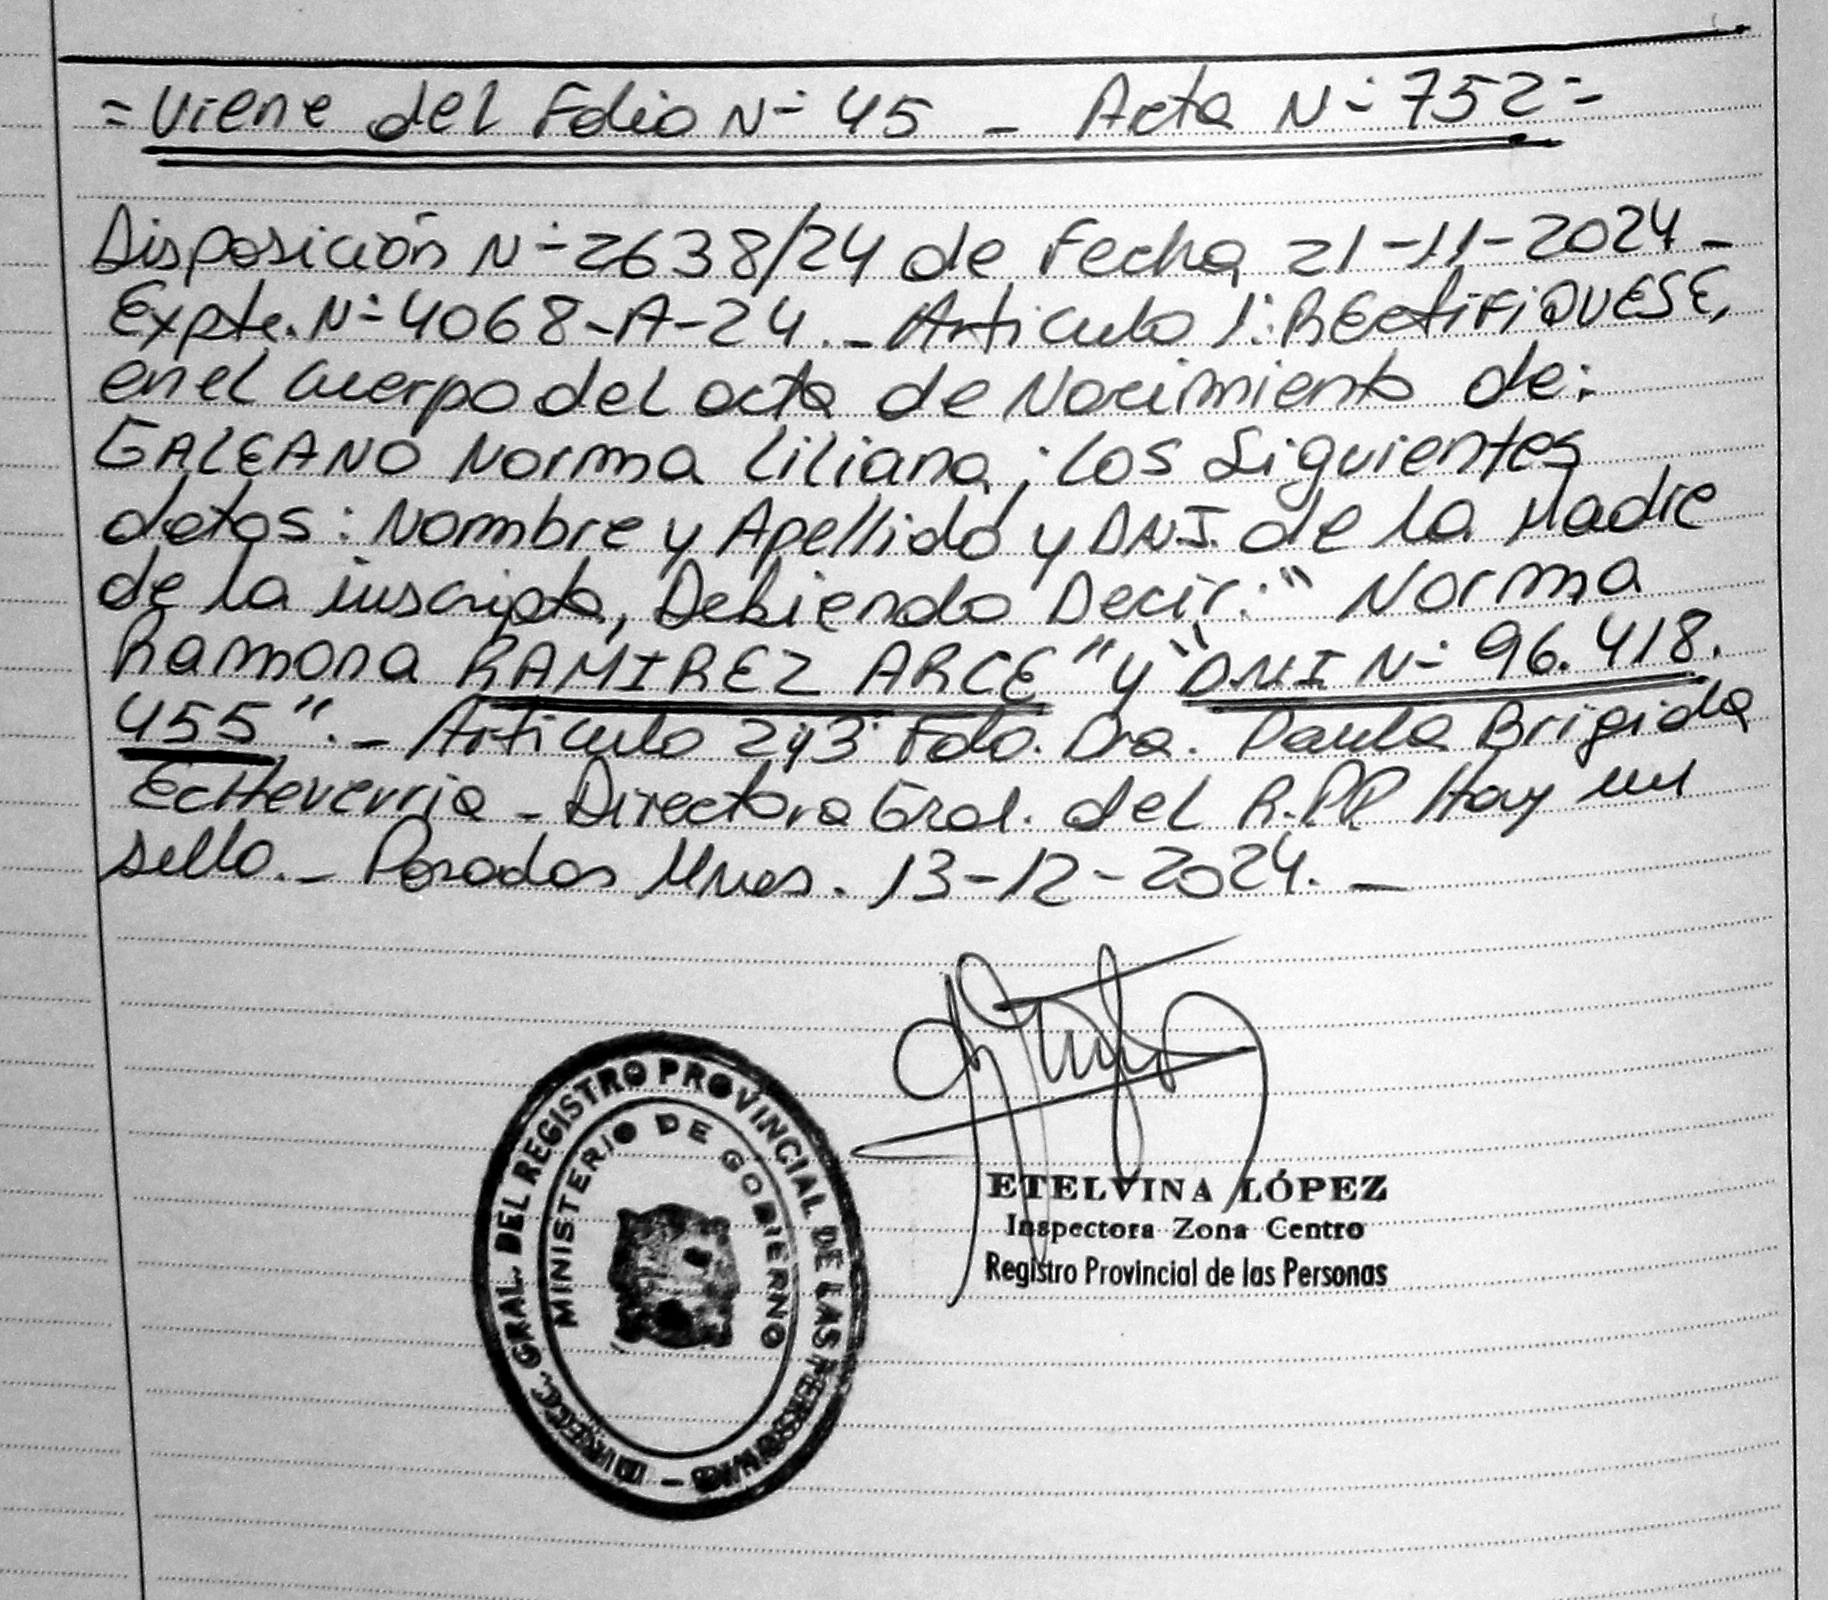 = Viene del Folio N- 45 - Acta N- 752 =
Disposición N- 2638/24 de Fecha 21-11-2024 -
Expte. N- 4068-A-24. - Articulo 1: RECtiFiQUESE,
en el cuerpo del acta de Nacimiento de:
GALEANO Norma Liliana; los Siguientes
datos: Nombre y Apellido y DNI. de la Madre
de la inscripta, Debiendo Decir: "Norma
Ramona RAMIREZ ARCE" y "DNI N- 96.418.
455". - Articulo 2y3 Fdo. Dra. Paula Brigida
Echeverria - Directora Gral. del R.P.P. Hay un
sello. - Posadas Mnes. 13-12-2024. -
DIRECC. GRAL. DEL REGISTRO PROVINCIAL DE LAS PERSONAS -
MINISTERIO DE GOBIERNO
ETELVINA LÓPEZ
Inspectora Zona Centro
Registro Provincial de las Personas